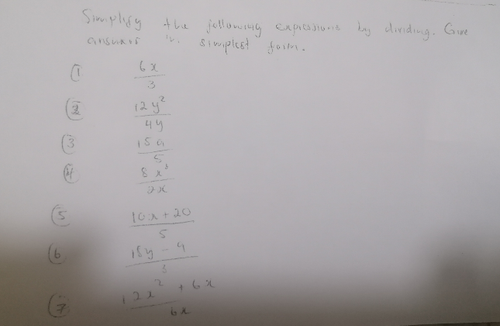 Simplify the following expressions by dividing. Give
answers in simplest form.
① 6x/3
② 12y²/4y
③ 15a/5
④ 8x³/2x
⑤ 10x + 20/5
⑥ 15y - 9/3
⑦ 12x² + 6x/6x